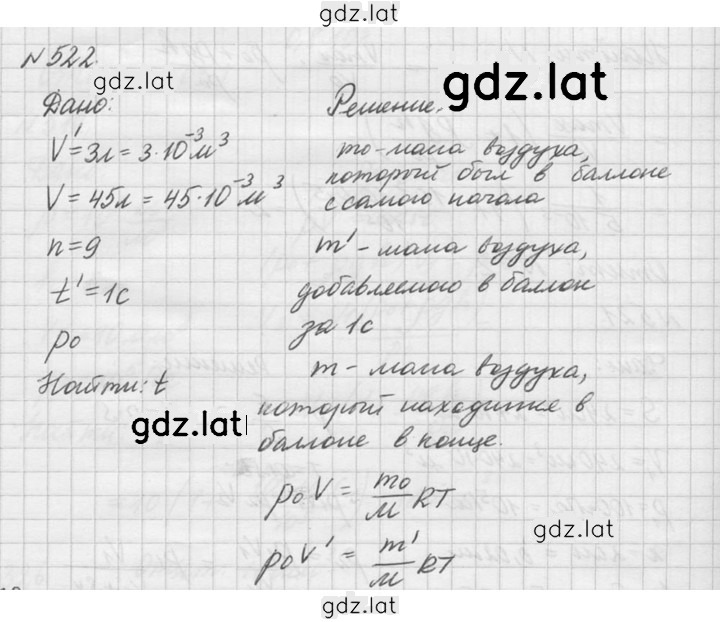 gdz.lat
№522.
gdz.lat
gdz.lat
Дано:
Решение.
V'=3л=3·10⁻³м³
V=45л=45·10⁻³м³
n=9
t'=1с
p₀
Найти: t
gdz.lat
m₀-масса воздуха,
который был в баллоне
с самого начала
m'-масса воздуха,
добавляемого в баллон
за 1с
m-масса воздуха,
который находится в
баллоне в конце.
p₀V = m₀/M RT
gdz.lat
p₀V' = m'/M RT
gdz.lat